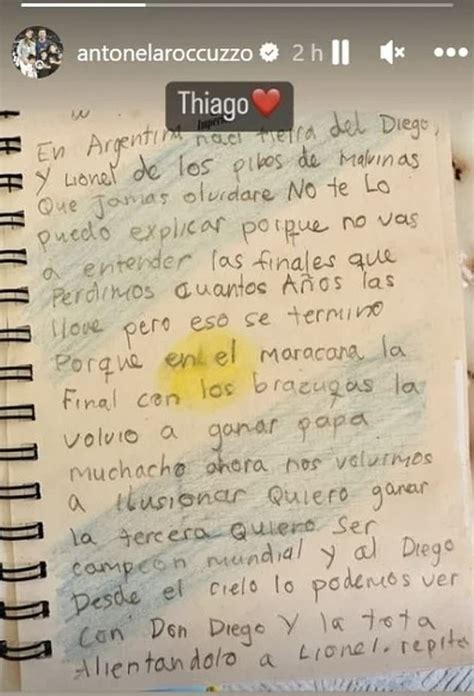 antonelaroccuzzo 2 h
Thiago❤️
En Argentina naci tierra del Diego,
Y Lionel de los pibes de Malvinas
Que Jamas olvidare No te Lo
puedo explicar porque no vas
a entender las finales que
Perdimos cuantos Años las
llore pero eso se termino
Porque en el maracana la
Final con los brazugas la
volvio a ganar papa
muchacho ahora nos volvimos
a Ilusionar Quiero ganar
la tercera Quiero Ser
campeon mundial y al Diego
Desde el cielo lo podemos ver
Con Don Diego Y la tota
Alientandolo a Lionel. repite